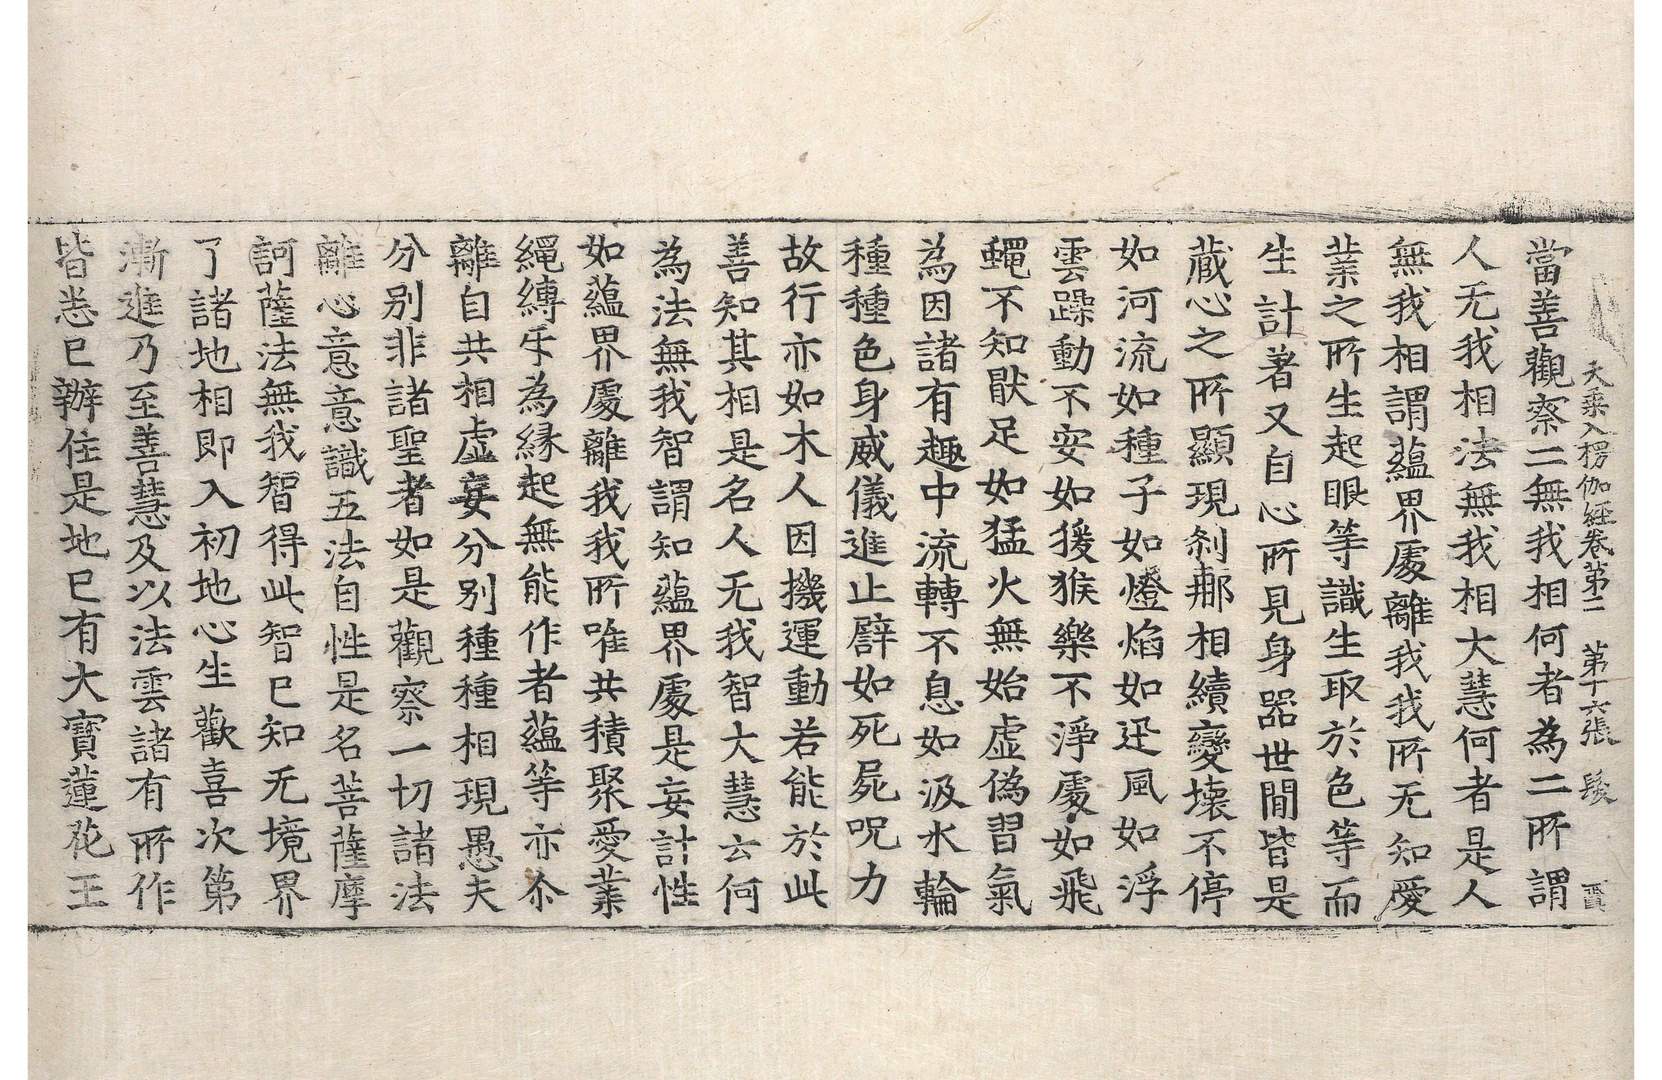 大乘入楞伽經卷第二 第十六張 髮
當善觀察二無我相何者為二所謂
人无我相法無我相大慧何者是人
無我相謂蘊界處離我我所无知愛
業之所生起眼等識生取於色等而
生計著又自心所見身器世間皆是
藏心之所顯現剎那相續變壞不停
如河流如種子如燈焰如迅風如浮
雲躁動不安如猨猴樂不淨處如飛
蠅不知猒足如猛火無始虛偽習氣
為因諸有趣中流轉不息如汲水輪
種種色身威儀進止譬如死屍呪力
故行亦如木人因機運動若能於此
善知其相是名人无我智大慧云何
為法無我智謂知蘊界處是妄計性
如蘊界處離我我所唯共積聚愛業
繩縛㸦為縁起無能作者蘊等亦尒
離自共相虛妄分別種種相現愚夫
分別非諸聖者如是觀察一切諸法
離心意意識五法自性是名菩薩摩
訶薩法無我智得此智已知无境界
了諸地相即入初地心生歡喜次第
漸進乃至善慧及以法雲諸有所作
皆悉已辦住是地已有大寶蓮花王